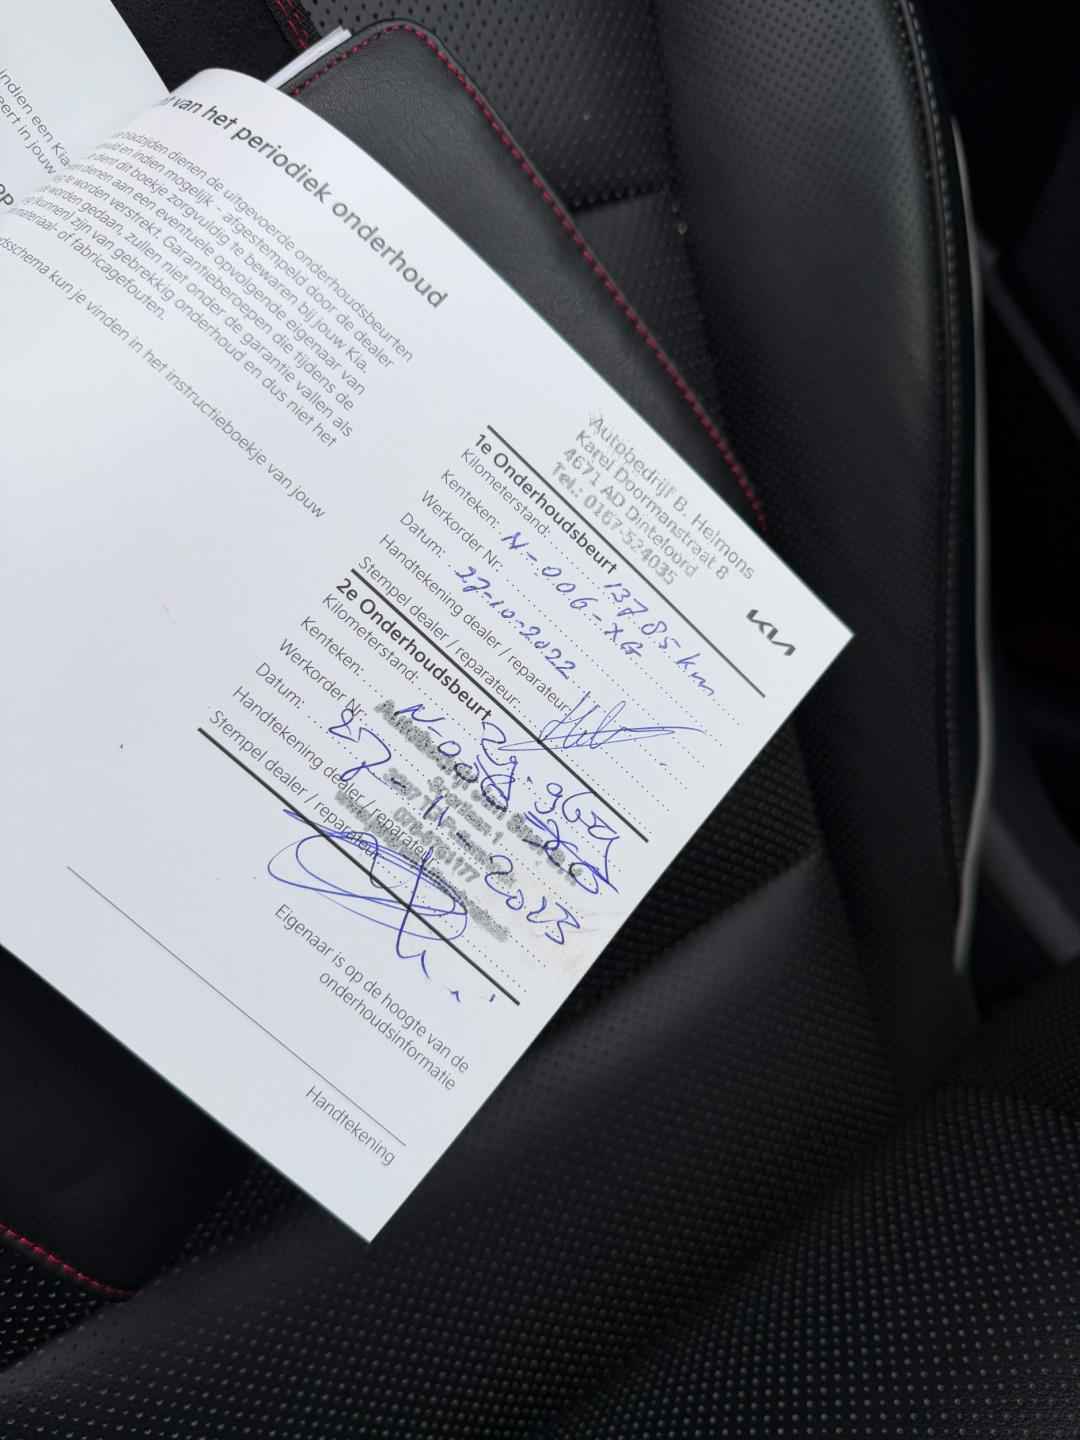 indien een Kia
eert in jouw
OP
nt van het periodiek onderhoud
bladzijden dienen de uitgevoerde onderhoudsbeurten
en indien mogelijk - afgestempeld door de dealer
dient dit boekje zorgvuldig te bewaren bij jouw Kia,
dienen aan een eventuele opvolgende eigenaar van
te worden verstrekt. Garantieberoepen die tijdens de
worden gedaan, zullen niet onder de garantie vallen als
(kumen) zijn van gebrekkig onderhoud en dus niet het
materiaal- of fabricagefouten.
dsschema kun je vinden in het instructieboekje van jouw
Autobedrijf B. Helmons
Karel Doormanstraat 8
4671 AD Dinteloord
Tel.: 0167-524035
KIA
1e Onderhoudsbeurt
Kilometerstand: 13785 km
Kenteken: N-006-XG
Werkorder Nr:
Datum: 27-10-2022
Handtekening dealer / reparateur:
Stempel dealer / reparateur:
2e Onderhoudsbeurt
Kilometerstand:
Kenteken: N-006
Werkorder Nr:
Datum: 27-11-2023
Handtekening dealer / reparateur:
Stempel dealer / reparateur:
Eigenaar is op de hoogte van de
onderhoudsinformatie
Handtekening